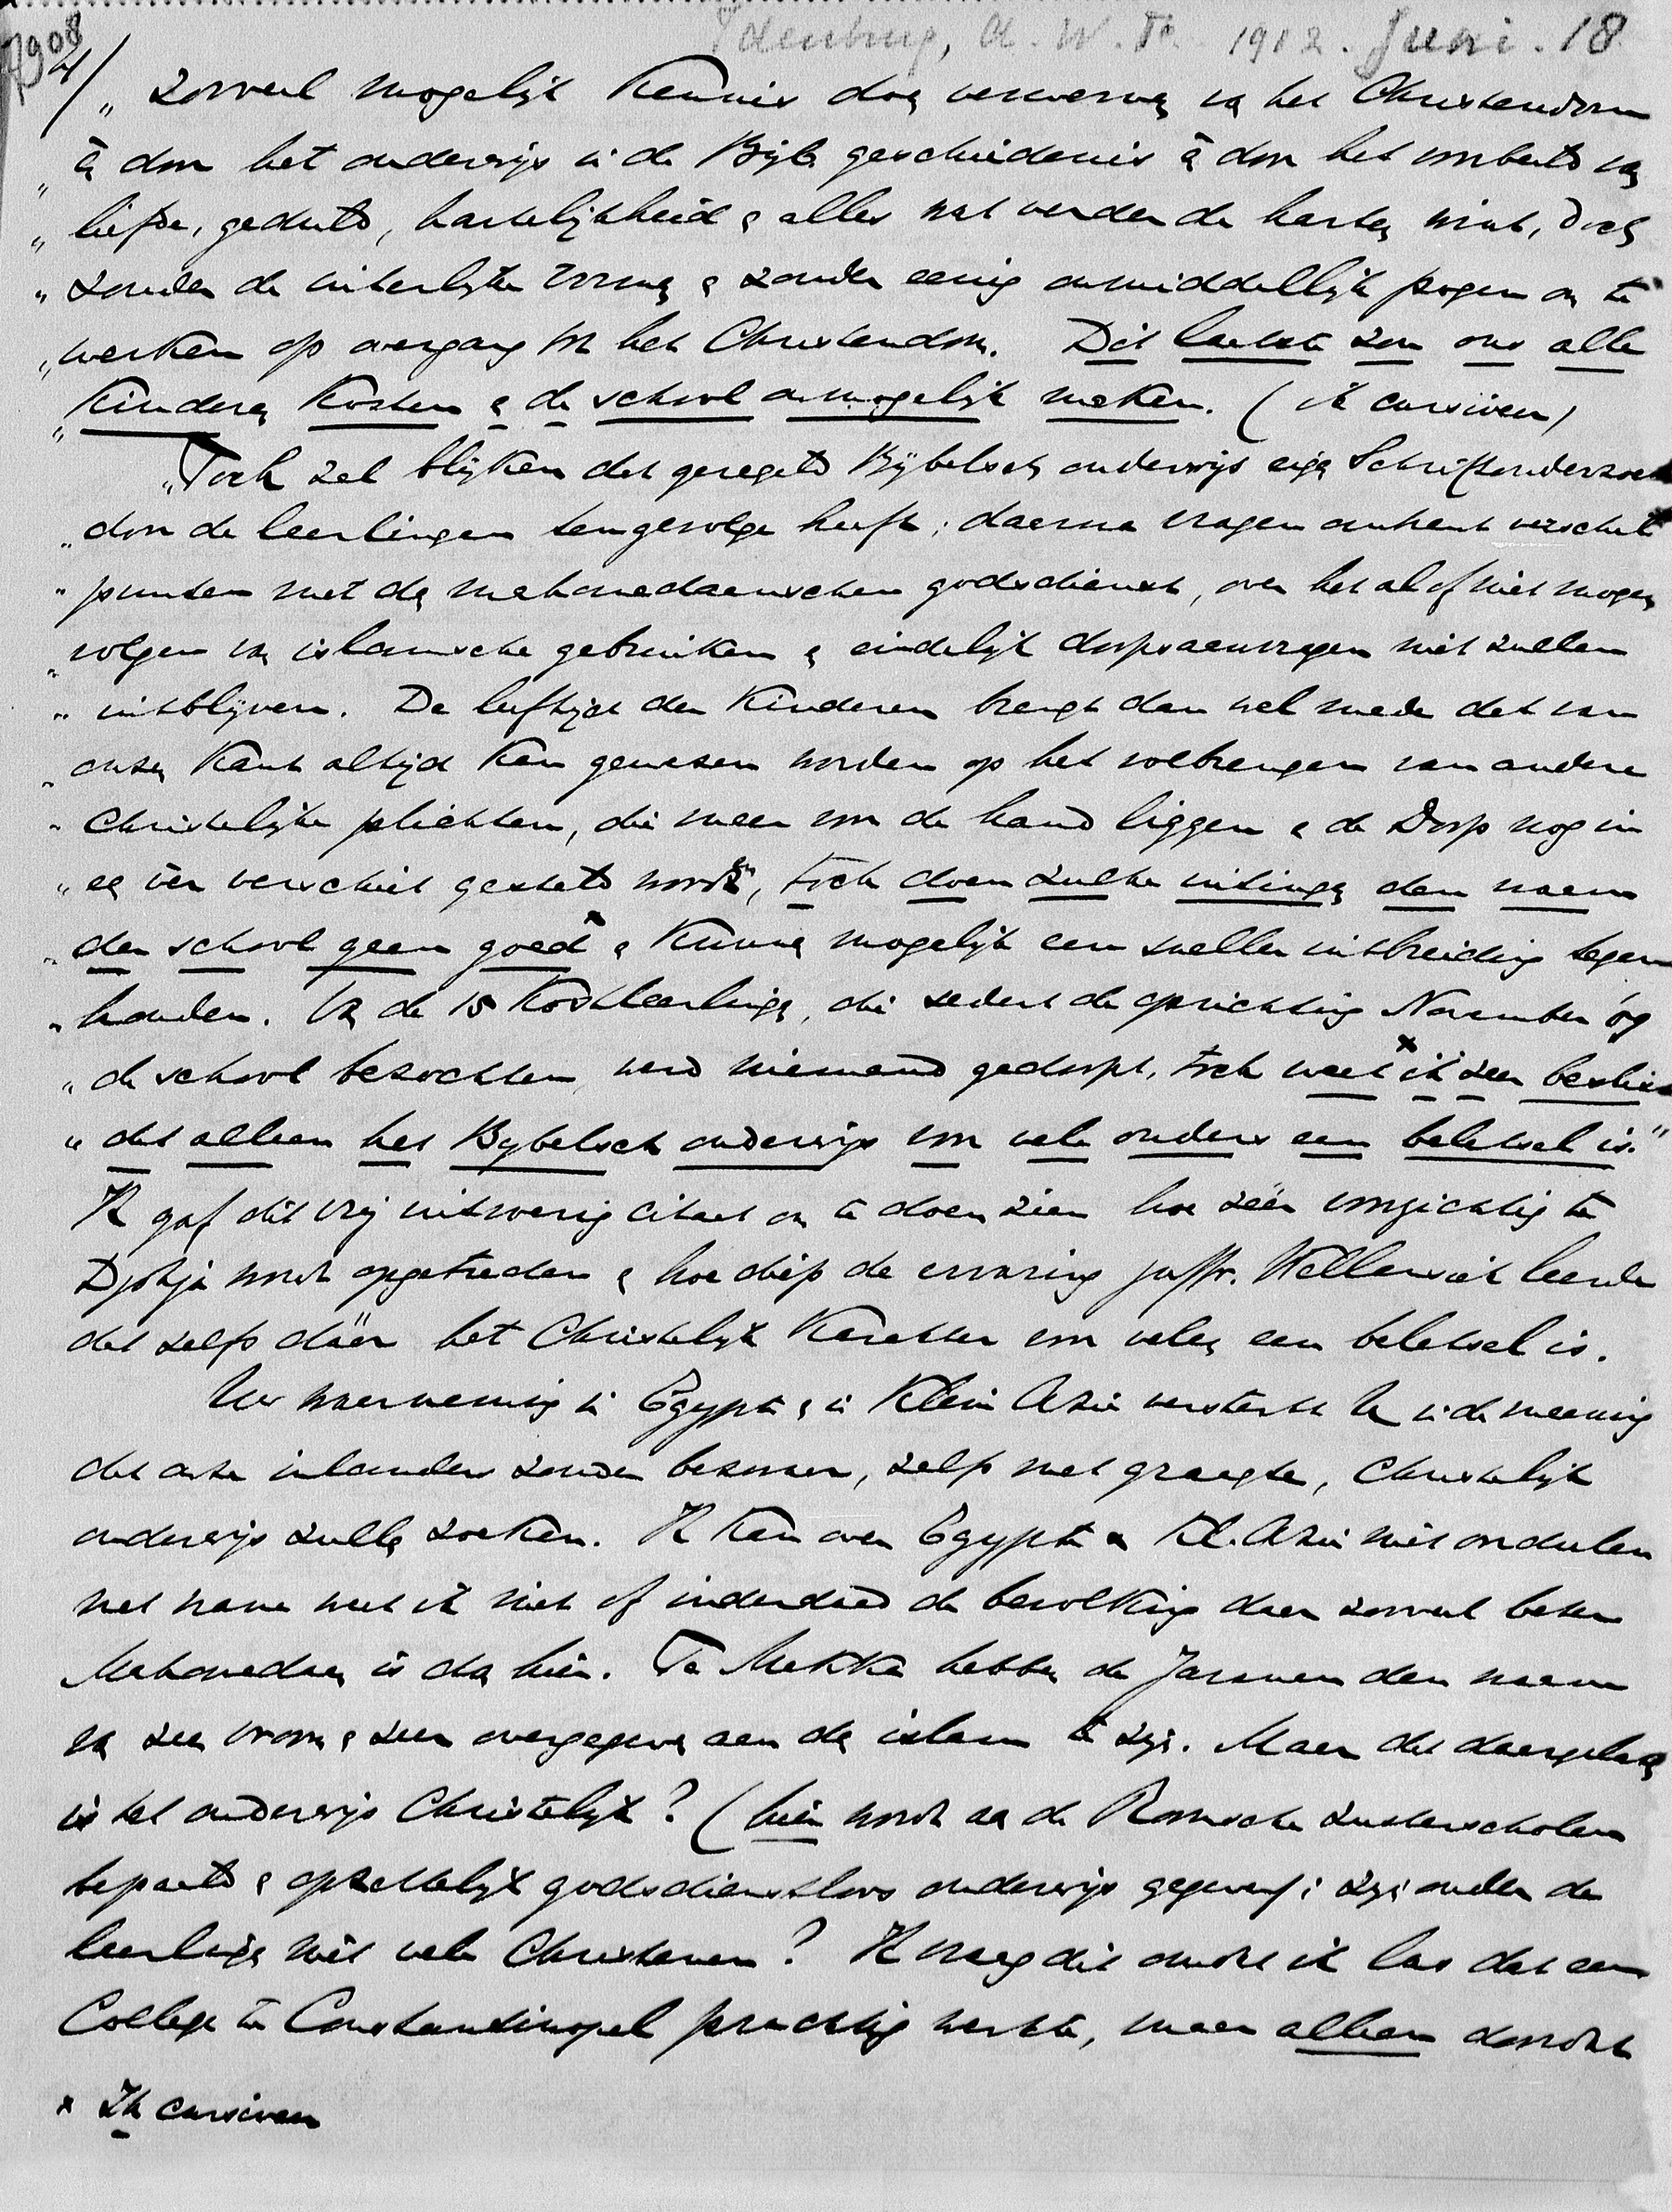 7908
Idenburg, A. W. F. 1912. Juni. 18
4/ „ zooveel mogelijk kennis doen verwerven van het Christendom
„ èn door het onderwijs in de Bijb. geschiedenis èn door het voorbeeld van
„ liefde, geduld, hartelijkheid & alles wat verder de harten wint, doch
„ zonder de uiterlijke vormen & zonder eenig onmiddellijk pogen om te
„ werken op overgang tot het Christendom. Dit laatste zou ons alle
„ kinderen kosten & de school onmogelijk maken. (ik cursiveer)
„ Toch zal blijken dat geregeld Bijbelsch onderwijs eigen Schriftonderzoek
„ door de leerlingen tengevolge heeft; daarna vragen omtrent verschil
„ punten met den mahomedaanschen godsdienst, over het al of niet mogen
„ volgen van islamsche gebruiken & eindelijk doopsaanvragen niet zullen
„ uitblijven. De leeftijd der kinderen brengt dan wel mede dat van
„ onzen kant altijd kan gewezen worden op het volbrengen van andere
„ Christelijke plichten, die meer voor de hand liggen & de Doop nog in
„ een vèr verschiet gesteld wordt, toch doen zulke uitingen den naam
„ der school geen goed x & kunnen mogelijk een sneller uitbreiding tegen
„ houden. Van de 15 kostleerlingen, die sedert de oprichting November '09
„ de school bezochten werd niemand gedoopt, toch weet x ik zeer beslist
„ dat alleen het Bybelsch onderwijs voor vele ouders een beletsel is."
Ik gaf dit vrij uitvoerig citaat om te doen zien hoe zéér voorzichtig te
Djokja wordt opgetreden & hoe diep de ervaring juffr. Wellensiek leerde
dat zelfs dáár het Christelijk karakter voor velen een beletsel is.
Uw waarneming in Egypte & in Klein Azie versterkt U in de meening
dat onze inlanders zonder bezwaar, zelfs met graagte, Christelijk
onderwijs zullen zoeken. Ik kan over Egypte & Kl. Azie niet oordeelen
met name weet ik niet of inderdaad de bevolking daar zooveel beter
Mahomedaan is dan hier. Te Mekka hebben de Javanen den naam
van zeer vroom & zeer overgegeven aan den islam te zijn. Maar dit daargelaten
is het onderwijs Christelijk? (hier wordt aan de Roomsche zusterscholen
bepaald & opzettelijk godsdienstloos onderwijs gegeven); zijn onder de
leerlingen niet vele Christenen? Ik vraag dit omdat ik las dat een
College te Constantinopel prachtig werkte, maar alleen doordat
x Ik cursiveer